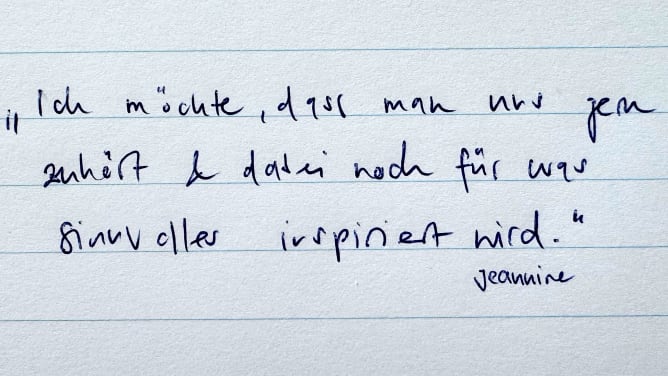 „Ich möchte, dass man uns gern
zuhört & dabei noch für was
sinnvolles inspiriert wird.“
Jeannine